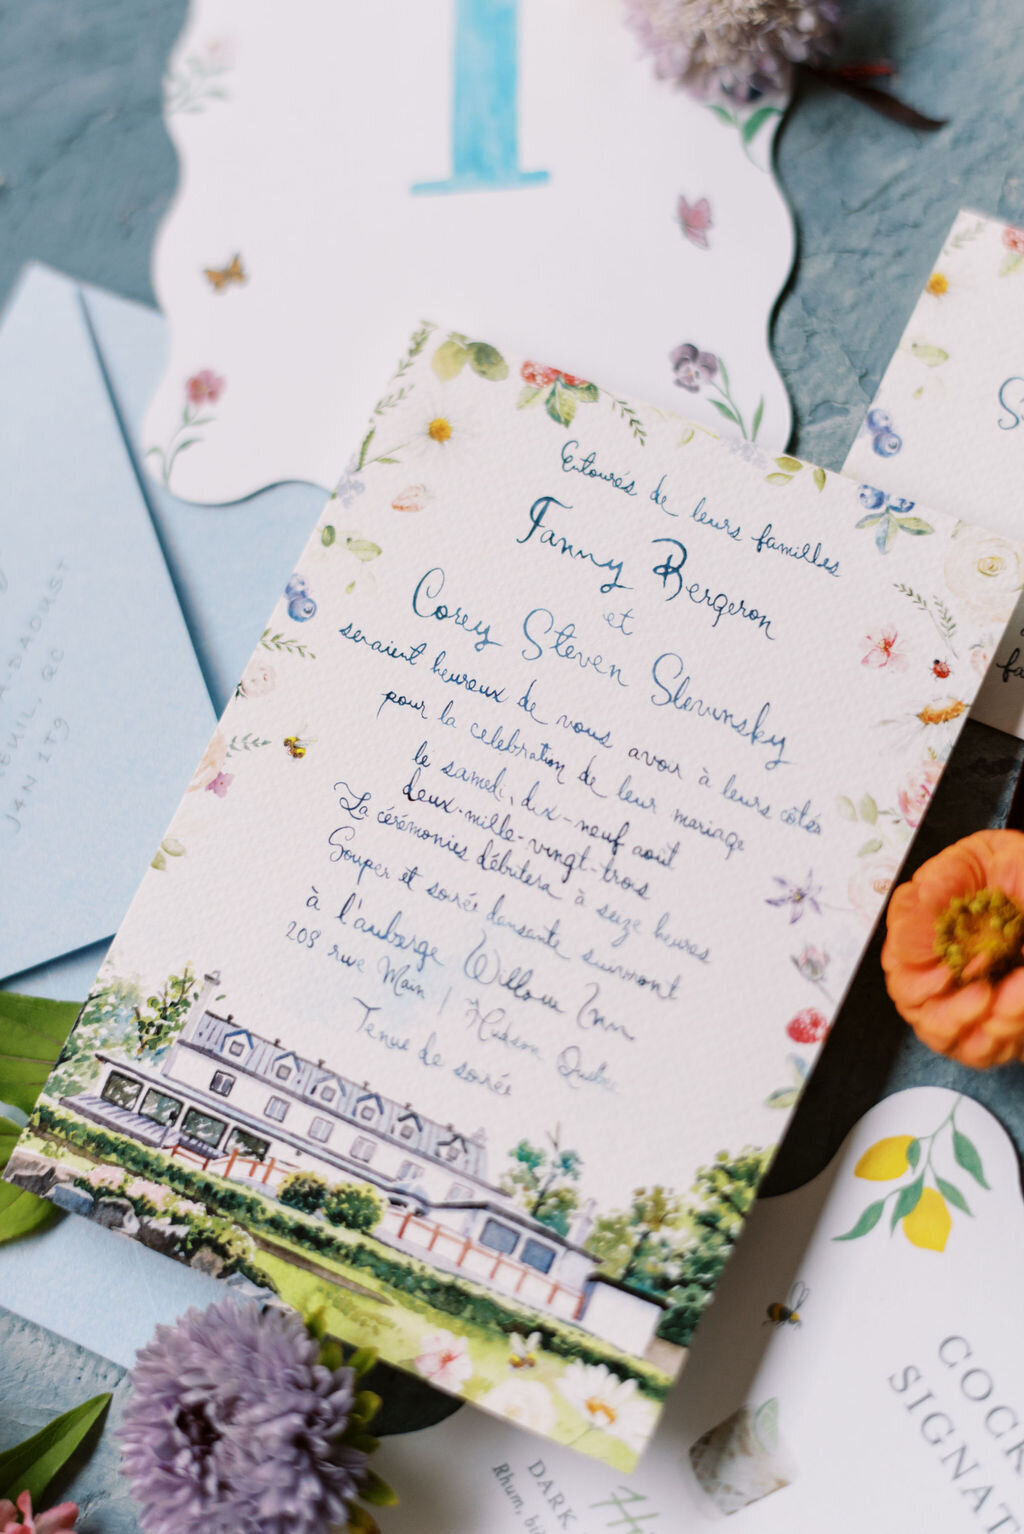 1
Entourés de leurs familles
Fanny Bergeron
et
Corey Steven Slevinsky
seraient heureux de vous avoir à leurs côtés
pour la celebration de leur mariage
le samedi, dix-neuf août
deux-mille-vingt-trois
La cérémonies débutera à seize heures
Souper et soirée dansante suivront
à l'auberge Willow Inn
208 rue Main / Hudson Quebec
Tenue de soirée
DAOUST
QC
J4N 1T9
S
fa
COCK
SIGNAT
DARK
Rhum,